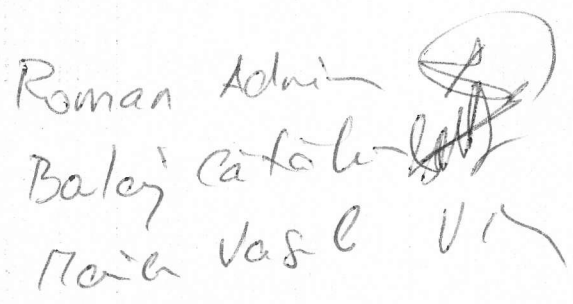 Roman Adrian
Balaj Cătălin
Vasile